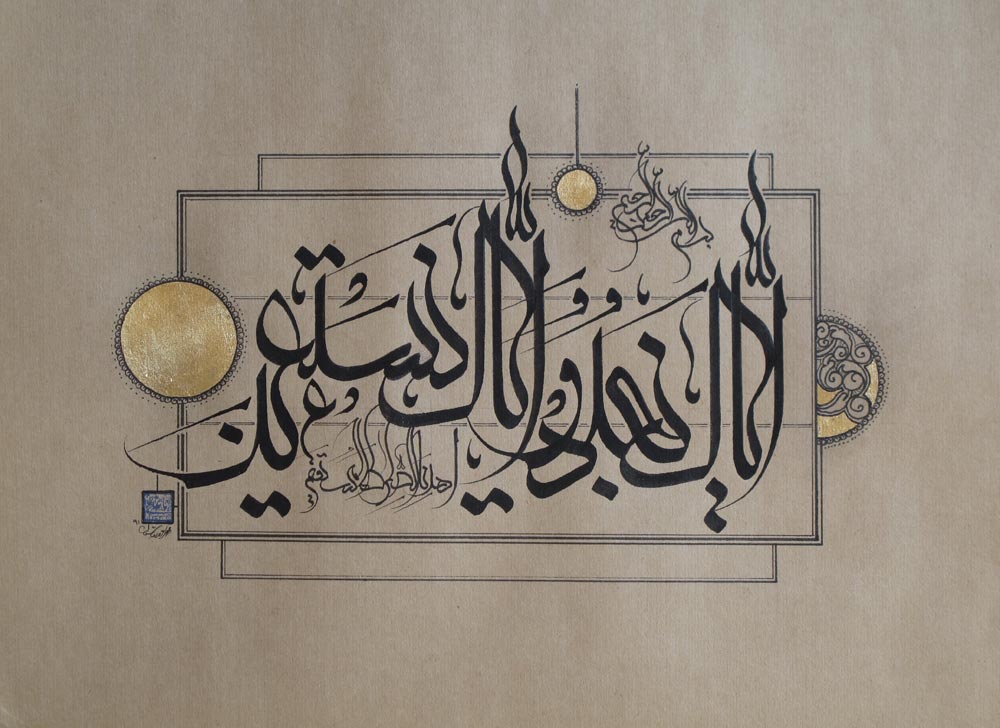 بسم الله الرحمن الرحيم
إياك نعبد وإياك نستعين
اهدنا الصراط المستقيم